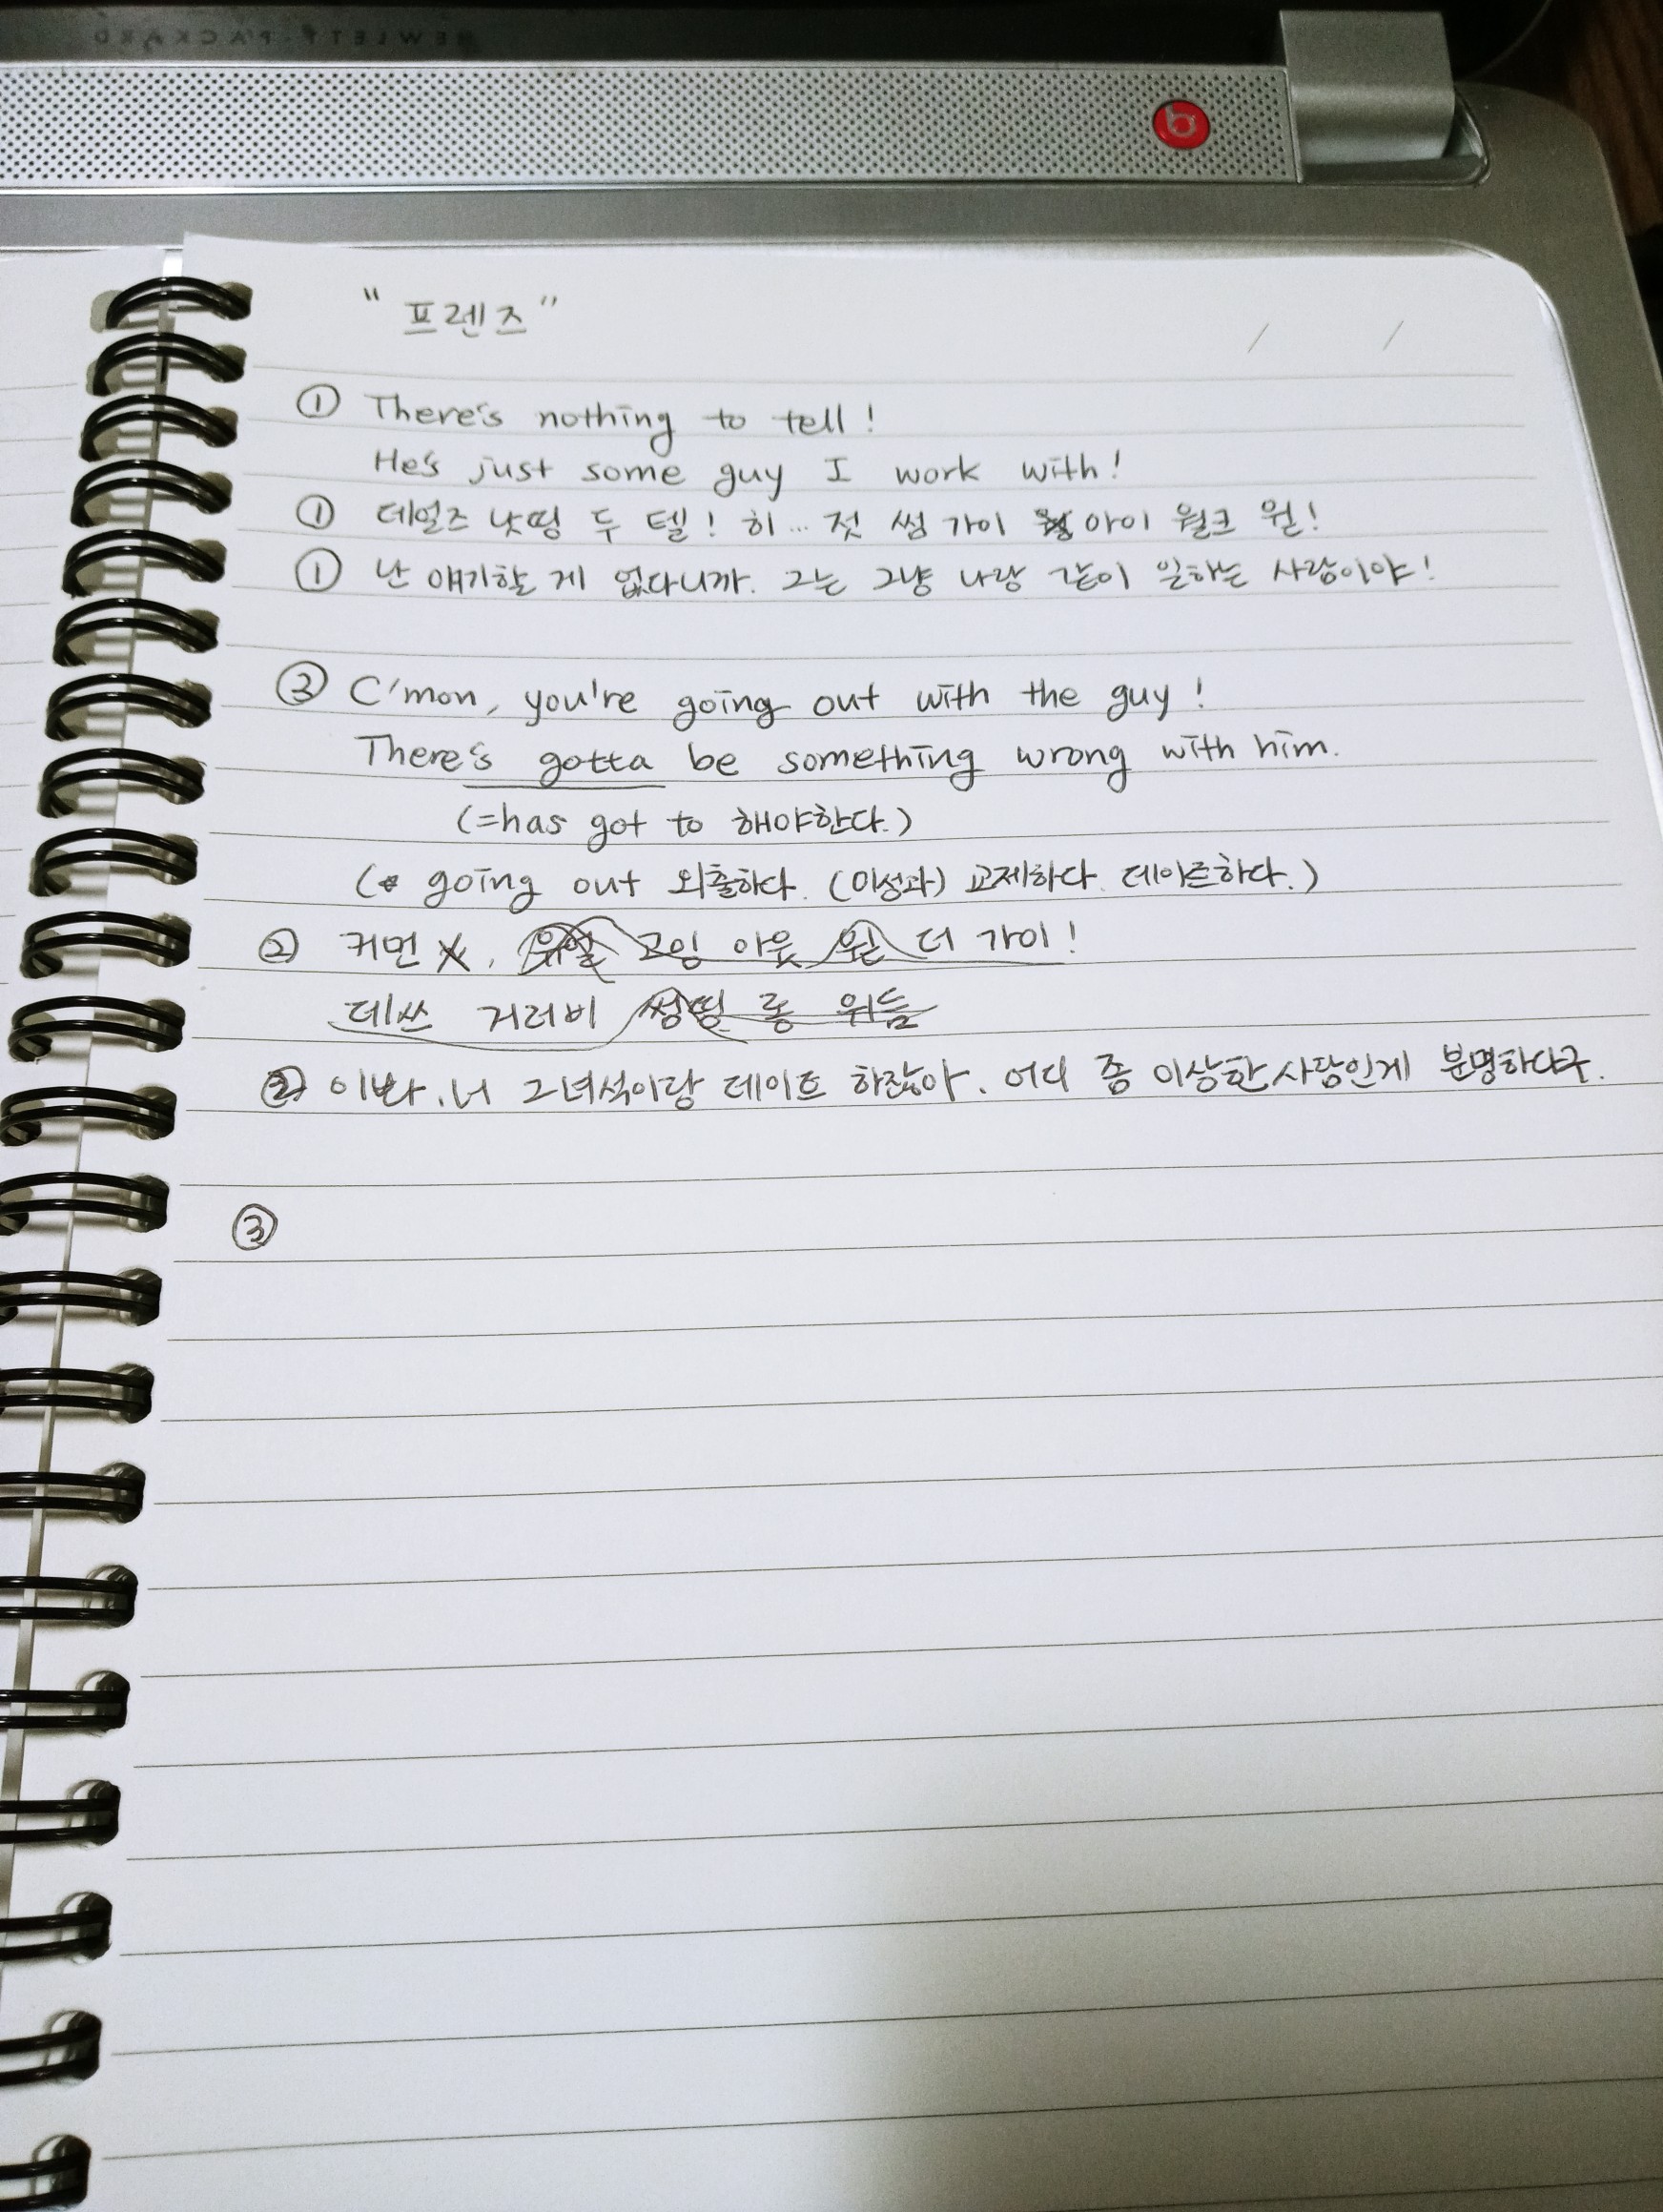 HEWLETT-PACKARD
b
" 프렌즈 "
/ /
① There's nothing to tell!
He's just some guy I work with!
① 데얼즈 낫띵 두 텔! 히... 젓 썸 가이 아이 월크 윋!
① 난 얘기할 게 없다니까. 그는 그냥 나랑 같이 일하는 사람이야!
③ C'mon, you're going out with the guy!
There's gotta be something wrong with him.
(=has got to 해야한다.)
( going out 외출하다. (이성과) 교제하다. 데이트하다.)
② 커먼 , 유얼 고잉 아웃 윋 더 가이!
데쓰 거러비 썸띵 롱 위듬
② 이봐, 너 그녀석이랑 데이트 하잖아. 어디 좀 이상한 사람인게 분명하다구.
③